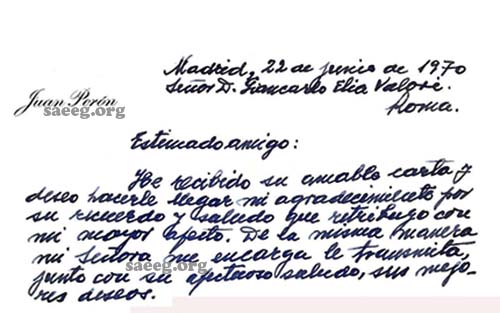 Madrid, 22 de junio de 1970
Señor D. Giancarlo Elia Valori.
Roma.
Juan Perón
saeeg.org
Estimado amigo:
He recibido su amable carta y
deseo hacerle llegar mi agradecimiento por
su recuerdo y saludo que retribuyo con
mi mayor afecto. De la misma manera
mi Señora me encarga le transmita,
saeeg.org
junto con su afectuoso saludo, sus mejo-
res deseos.